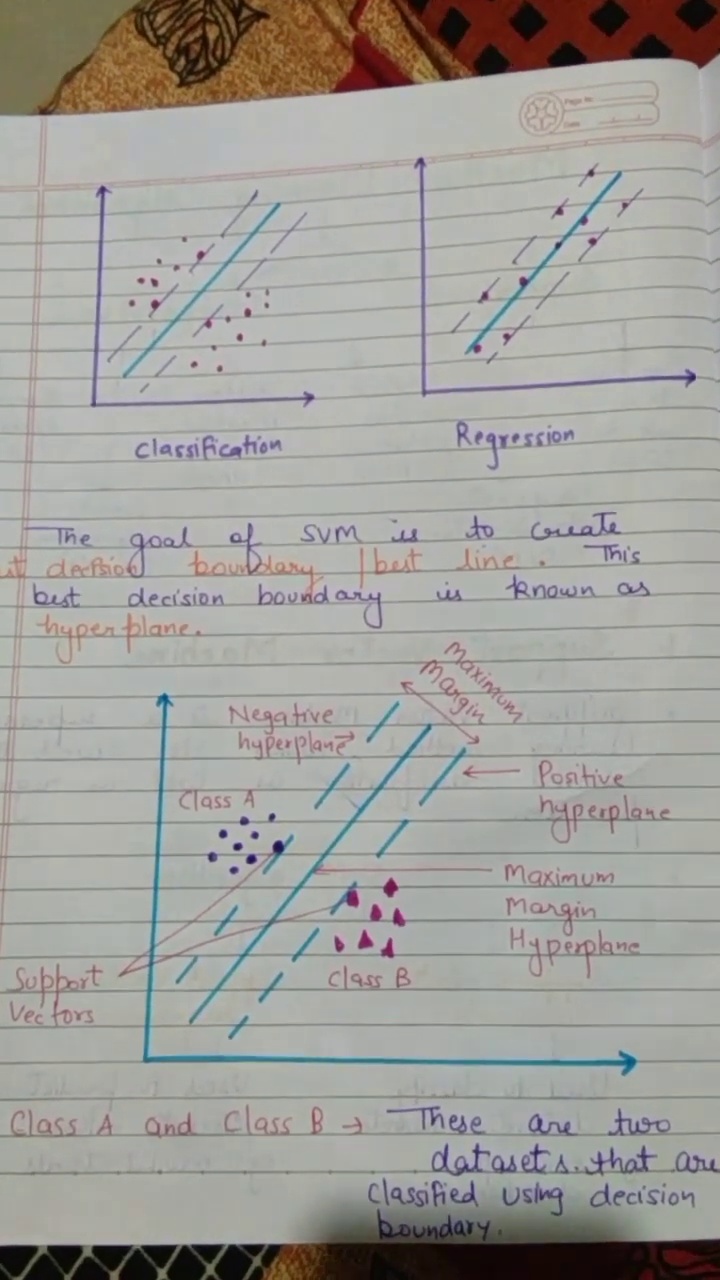 Page No.
Date
Classification
Regression
The goal of SVM is to create
decision boundary / best line. This
best decision boundary is known as
hyperplane.
Maximum
Margin
Negative
hyperplane
Class A
Positive
hyperplane
Maximum
Margin
Hyperplane
Support
Vectors
Class B
Class A and Class B → These are two
datasets. that are
classified using decision
boundary.